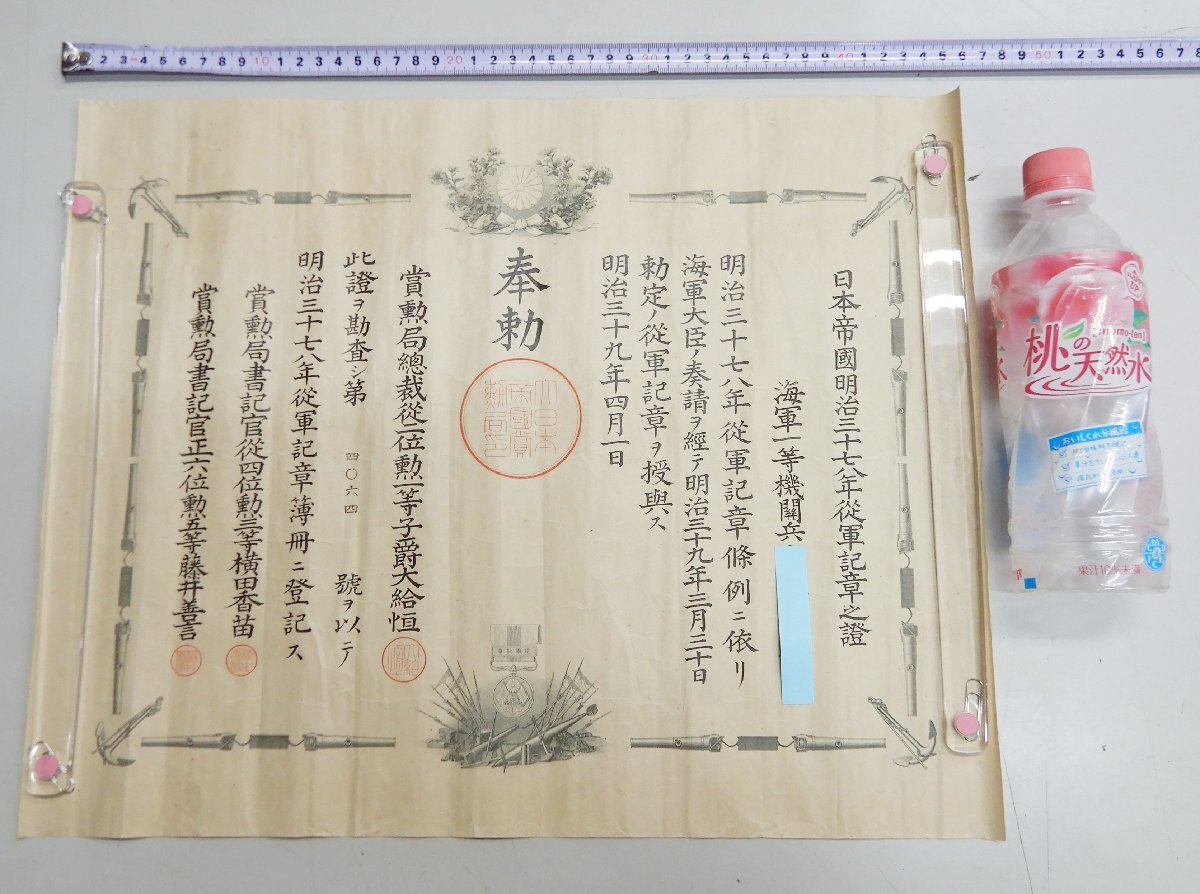 日本帝國明治三十七八年從軍記章之證
海軍一等機關兵
明治三十七八年從軍記章條例ニ依リ
海軍大臣ノ奏請ヲ經テ明治三十九年三月三十日
勅定ノ從軍記章ヲ授與ス
明治三十九年四月一日
奉勅
大日本
帝國賞
勲局印
賞勲局總裁從二位勲一等子爵大給恒
此證ヲ勘査シ第四〇六四號ヲ以テ
明治三十七八年從軍記章簿冊ニ登記ス
賞勲局書記官從四位勲三等横田香苗
賞勲局書記官正六位勲五等藤井善言
桃の天然水